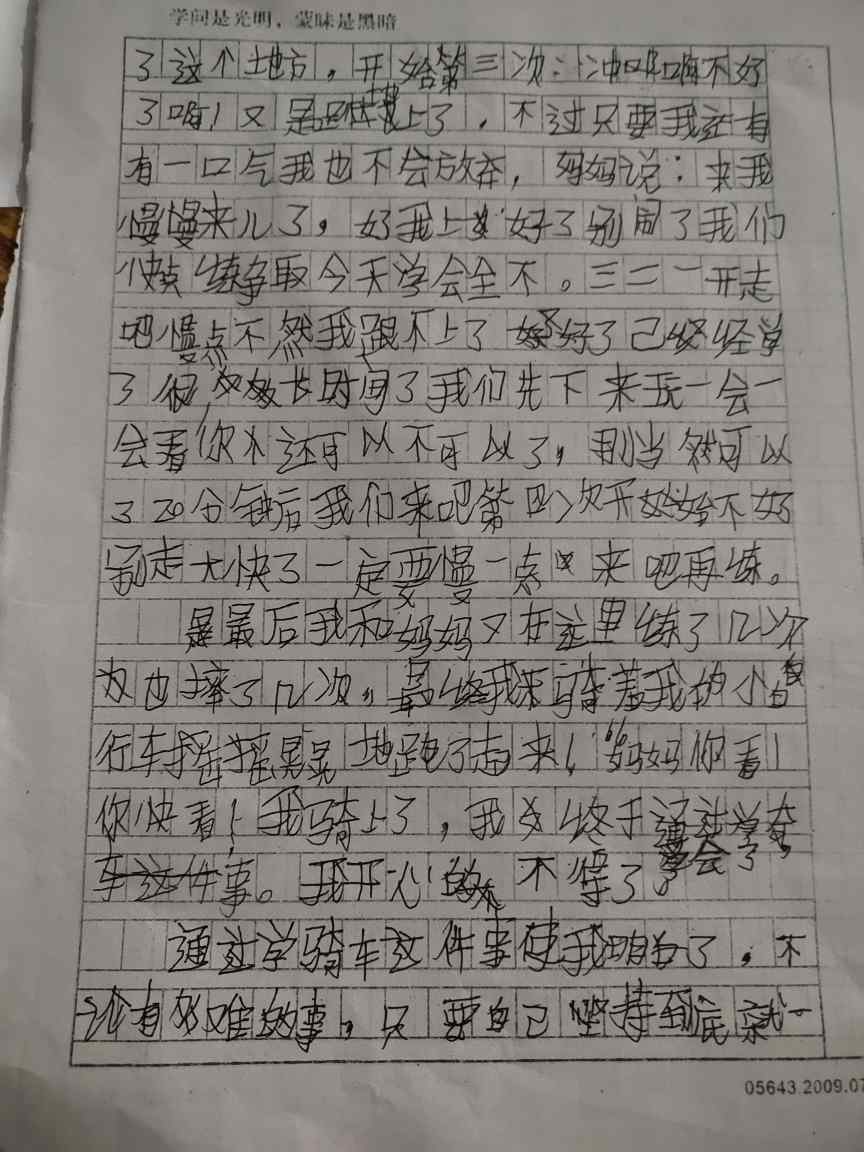 学问是光明，蒙昧是黑暗
了这个地方，开始第三次：冲啊啊不好
了啊！又是上了，不过只要我还有
有一口气我也不会放弃，妈妈说：来我
慢慢来儿了，好我上好了别闹了我们
快点练争取今天学会全不。三二一开走
吧慢点不然我跟不上了好了已经学
了很长时间了我们先下来玩一会一
会看你还可以不可以了，当然可以
了20分钟后我们来吧第四次开始不好
别走太快了一定要慢一点来吧再练。
最后我和妈妈又在这里练了几次
也摔了几次，最终我骑着我的小自
行车摇摇晃晃地跑了起来！“妈妈你看！
你快看！我骑上了，我终于学会了，
车这件事。我开心的不得了。
通过学骑车这件事使我明白了，不
没有难的事，只要自己坚持到底就一
05643.2009.07